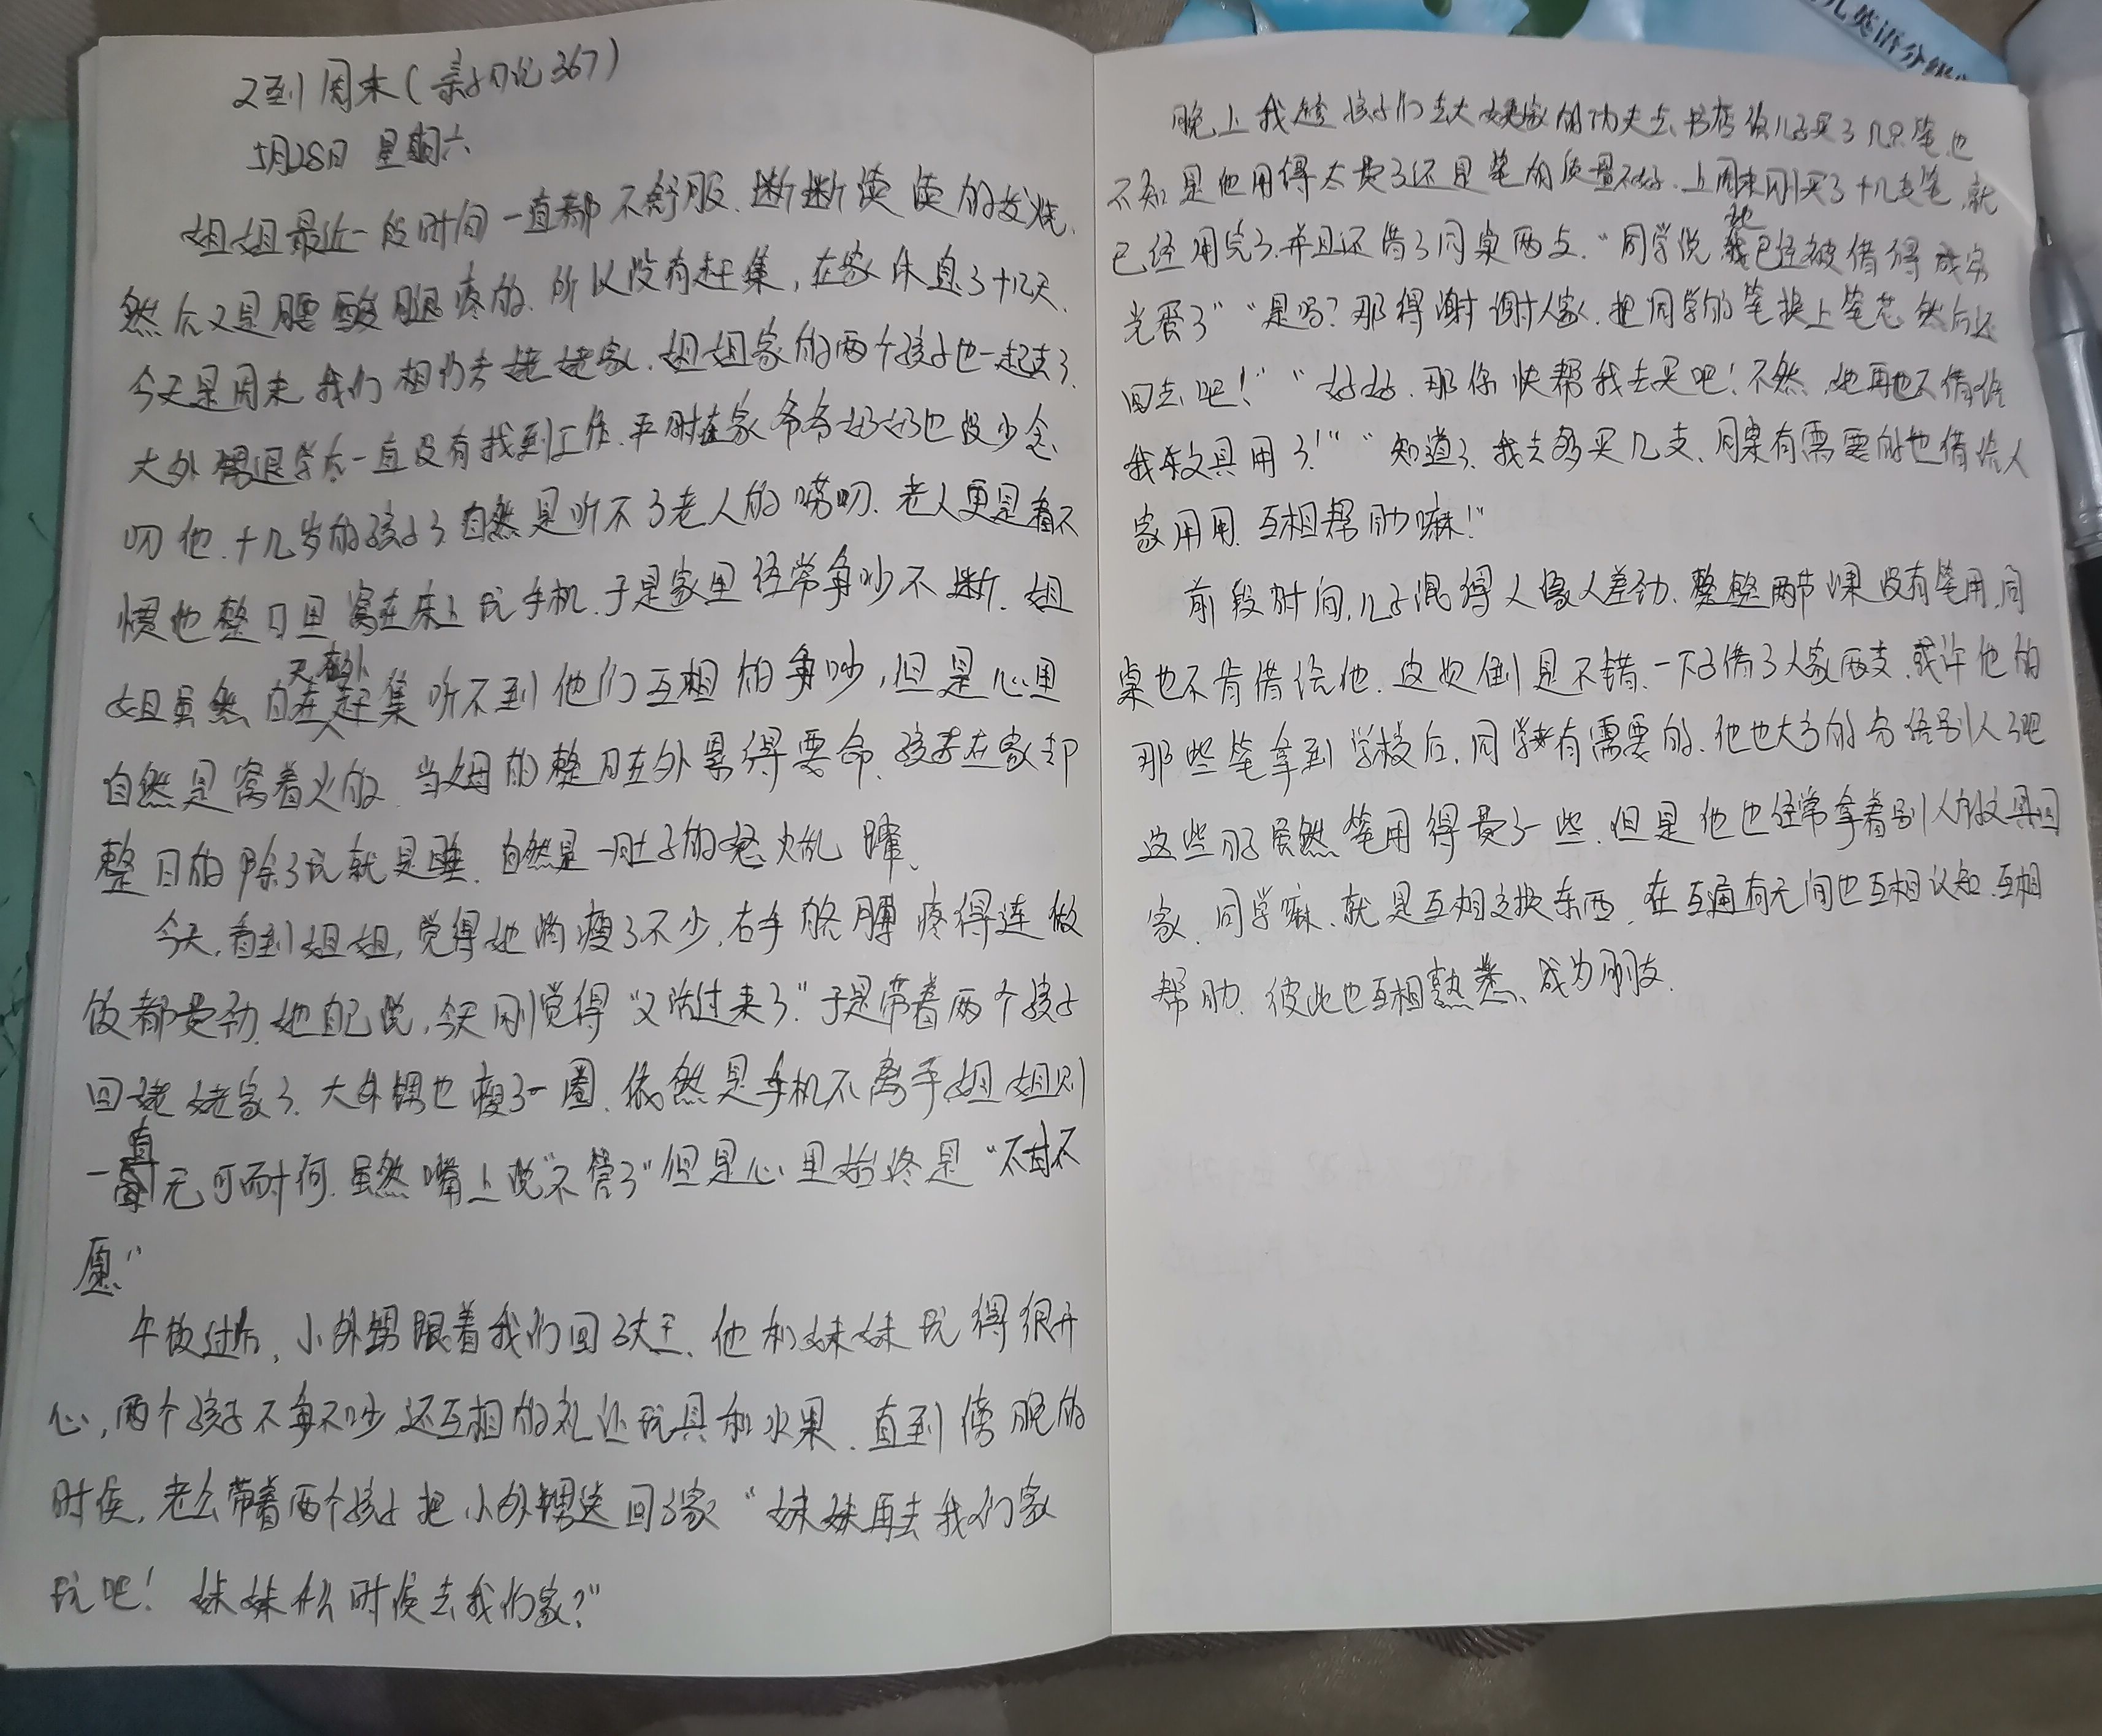 又到周末(亲子日记367)
5月28日 星期六
姐姐最近一段时间一直都不舒服、断断续续的发烧、
然后又是腰酸腿疼的、所以没有赶集，在家休息了十几天、
今天是周末、我们相约去姥姥家、姐姐家的两个孩子也一起去了、
大外甥退学后一直没有找到工作、平时在家爷爷奶奶也没少念
叨他、十几岁的孩子了自然是听不了老人的唠叨、老人更是看不
惯他整日里窝在床上玩手机、于是家里经常争吵不断、姐
姐虽然白天在外赶集听不到他们互相的争吵，但是心里
自然是窝着火的、当父母的整日在外累得要命、孩子在家却
整日的除了玩就是睡、自然是一肚子的怒火乱
今天，看到姐姐，觉得她消瘦了不少，右手胳膊疼得连做
饭都费劲、她自己说，今天刚觉得“又活过来了”于是带着两个孩子
回姥姥家了、大外甥也瘦了一圈、依然是手机不离手姐姐则
一直无可耐何、虽然嘴上说“不管了”但是心里始终是“不甘不
愿”
午饭过后，小外甥跟着我们回了大王、他和妹妹玩得很开
心，两个孩子不争不吵还互相的礼让玩具和水果、直到傍晚的
时侯，老公带着两个孩子把小外甥送回了家“妹妹再去我们家
玩吧！妹妹什么时侯去我们家？”
晚上我趁孩子们去大姨家的功夫去书店给儿子买了几只笔也
不知是他用得太费了还是笔的质量不好、上周末刚买了十几支笔，就
已经用完了、并且还借了同桌两支、“同学说她已经被借得成穷
光蛋了”“是吗？那得谢谢人家、把同学的笔换上笔芯然后还
回去吧！”“好好、那你快帮我去买吧！不然、她再也不借给
我文具用了！”“知道了、我去多买几支、同桌有需要的也借给人
家用用、互相帮助嘛！”
前段时间，儿子混得人缘人差劲、整整两节课没有笔用，同
桌也不肯借给他、这次倒是不错、一下子借了人家两支、或许他的
那些笔拿到学校后，同学有需要的、他也大方的分给别人了吧
这些日子虽然笔用得费了一些、但是他也经常拿着别人的文具回
家、同学嘛、就是互相交换东西、在互通有无间也互相认知、互相
帮助、彼此也互相熟悉、成为朋友、